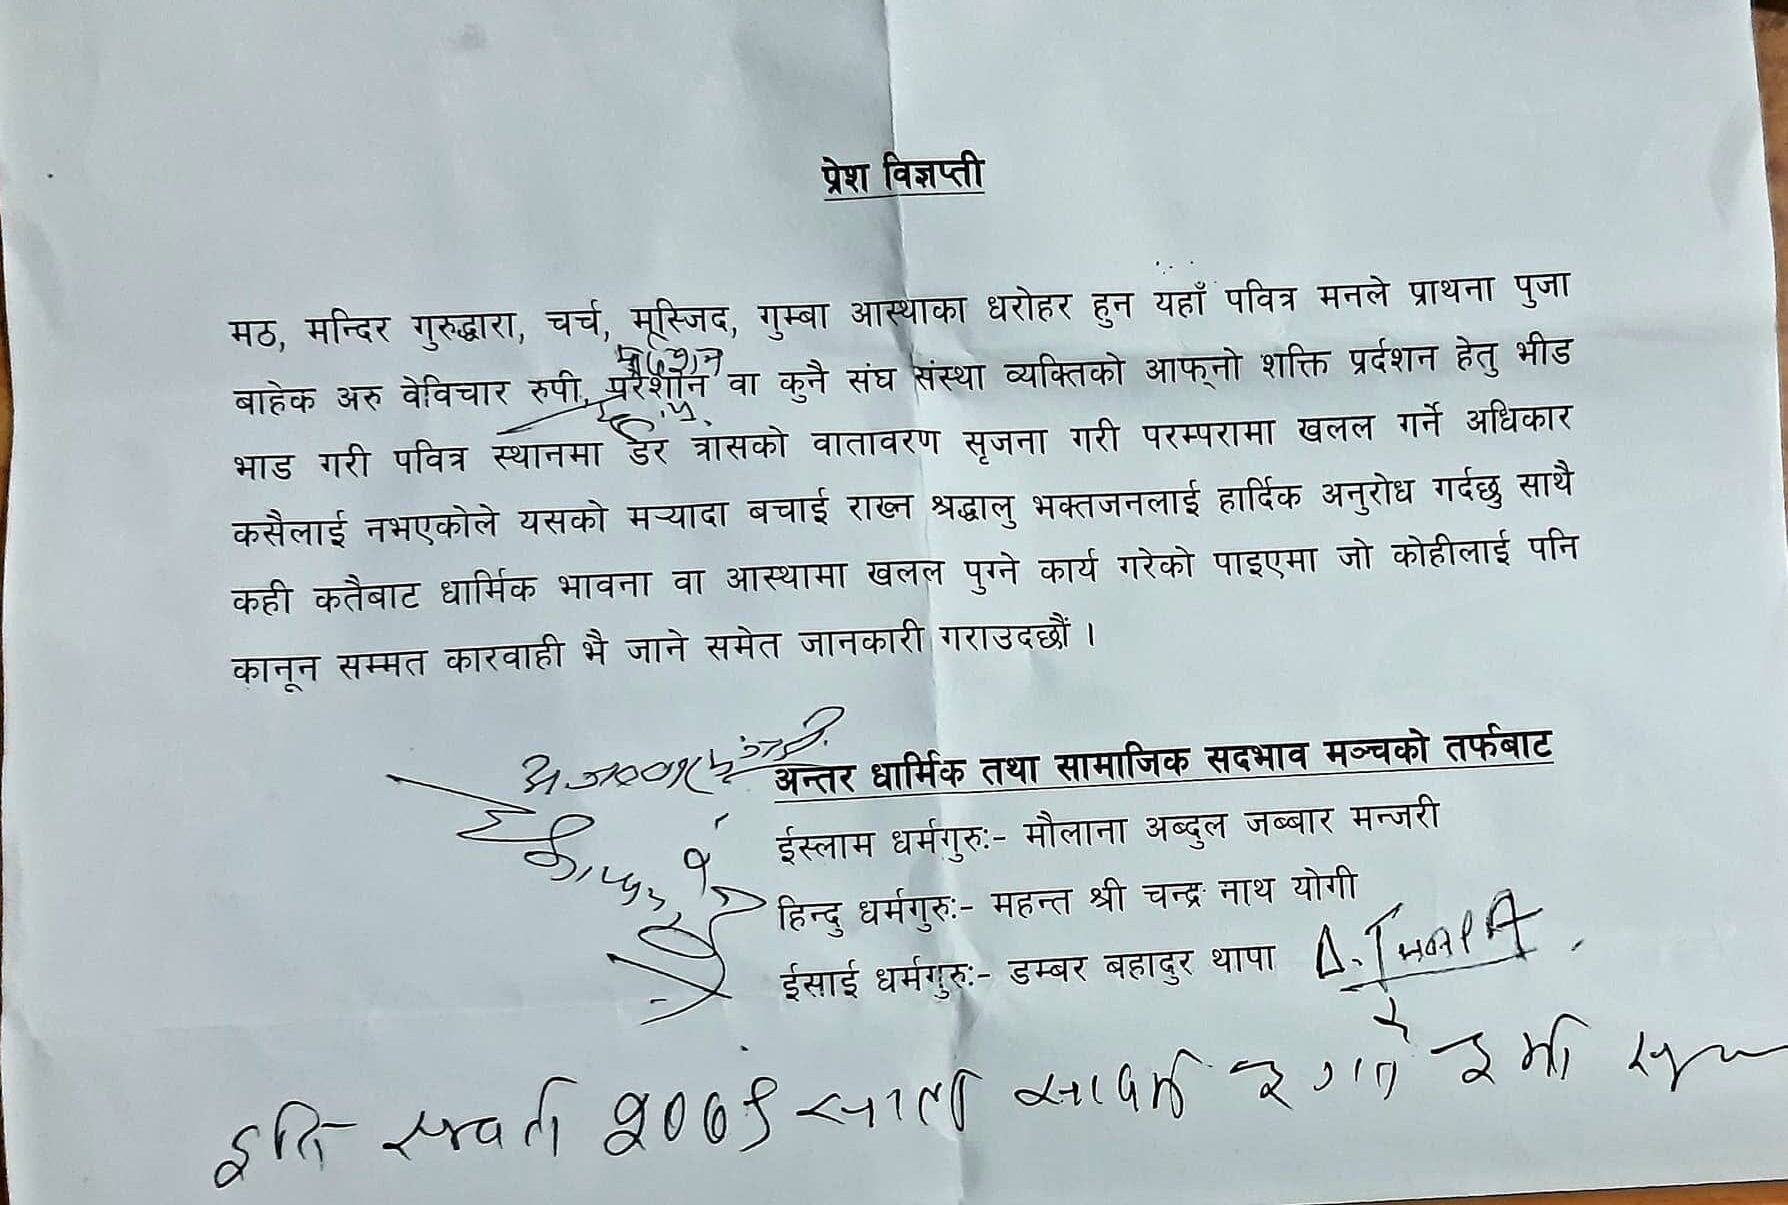 प्रेश विज्ञप्ती
मठ, मन्दिर गुरुद्धारा, चर्च, मूस्जिद, गुम्बा आस्थाका धरोहर हुन यहाँ पवित्र मनले प्राथना पुजा
बाहेक अरु वेविचार रुपी, प्ररेशान वा कुनै संघ संस्था व्यक्तिको आफ्नो शक्ति प्रर्दशन हेतु भीड
भाड गरी पवित्र स्थानमा डर त्रासको वातावरण सृजना गरी परम्परामा खलल गर्ने अधिकार
कसैलाई नभएकोले यसको मर्‍यादा बचाई राख्न श्रद्धालु भक्तजनलाई हार्दिक अनुरोध गर्दछु साथै
कही कतैबाट धार्मिक भावना वा आस्थामा खलल पुग्ने कार्य गरेको पाइएमा जो कोहीलाई पनि
कानून सम्मत कारवाही भै जाने समेत जानकारी गराउदछौं ।
अन्तर धार्मिक तथा सामाजिक सदभाव मञ्चको तर्फबाट
ईस्लाम धर्मगुरुः- मौलाना अब्दुल जब्बार मन्जरी
हिन्दु धर्मगुरुः- महन्त श्री चन्द्र नाथ योगी
ईसाई धर्मगुरुः- डम्बर बहादुर थापा
इति सम्वत २०७९ साल गते